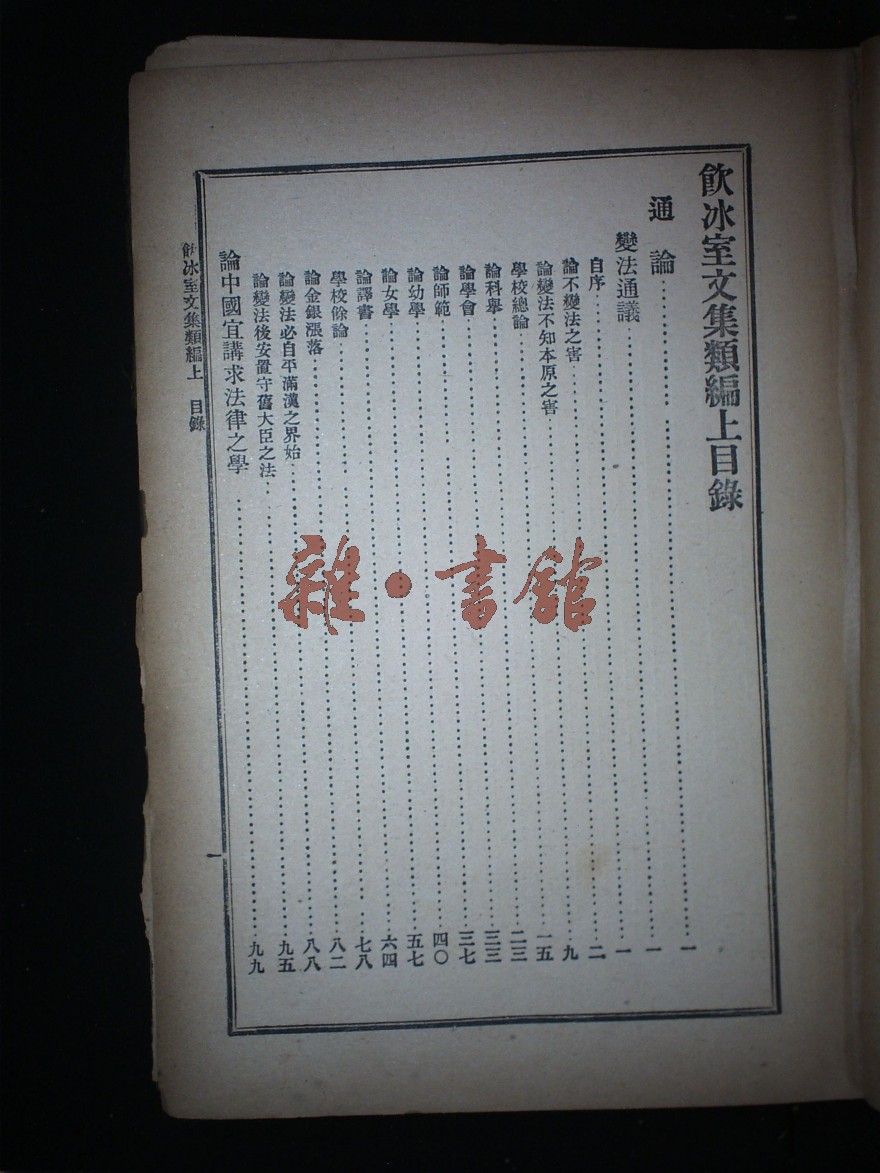 飲冰室文集類編上目錄
通論……一
變法通議……一
自序……一
論不變法之害……二
論變法不知本原之害……九
學校總論……一五
論科舉……二三
論學會……三三
論師範……三七
論幼學……四〇
論女學……五七
論譯書……六四
學校餘論……七八
論金銀漲落……八二
論變法必自平滿漢之界始……八八
論變法後安置守舊大臣之法……九五
論中國宜講求法律之學……九九
飲冰室文集類編上 目錄
一
雜·書館